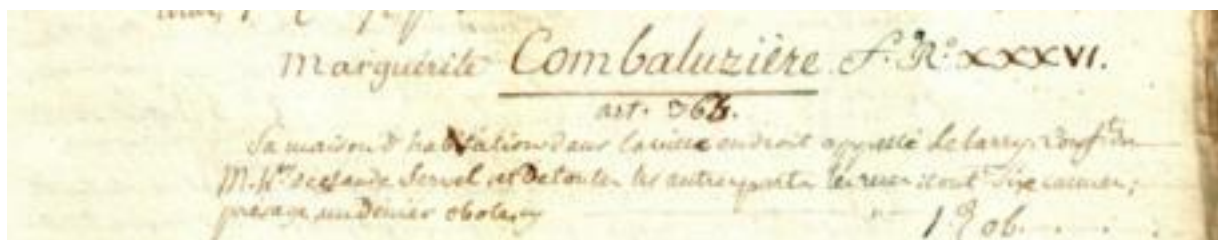 Marguérite Combaluzière f.° R.° XXXVI.
art. 365.
Sa maison d'habitation dans la ville endroit appellé de larry, conf.t du
M. et de toutes les autres parts les rues
presage un denier obole,
1 d ob.